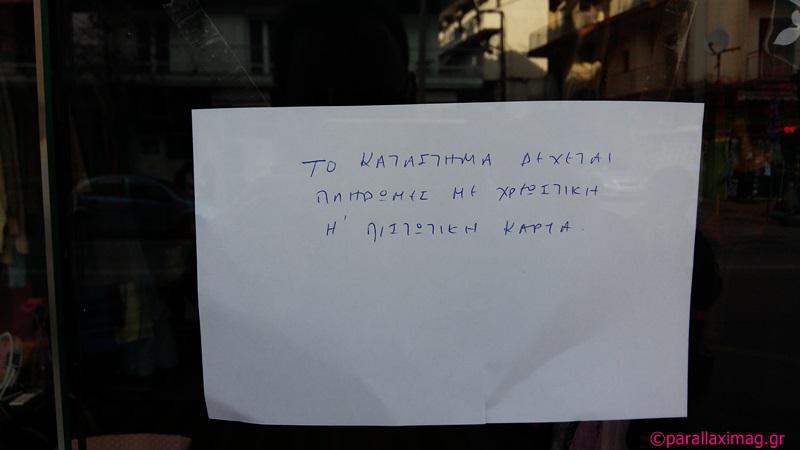 ΤΟ ΚΑΤΑΣΤΗΜΑ ΔΕΧΕΤΑΙ
ΠΛΗΡΩΜΕΣ ΜΕ ΧΡΕΩΣΤΙΚΗ
Η' ΠΙΣΤΩΤΙΚΗ ΚΑΡΤΑ.
©parallaximag.gr